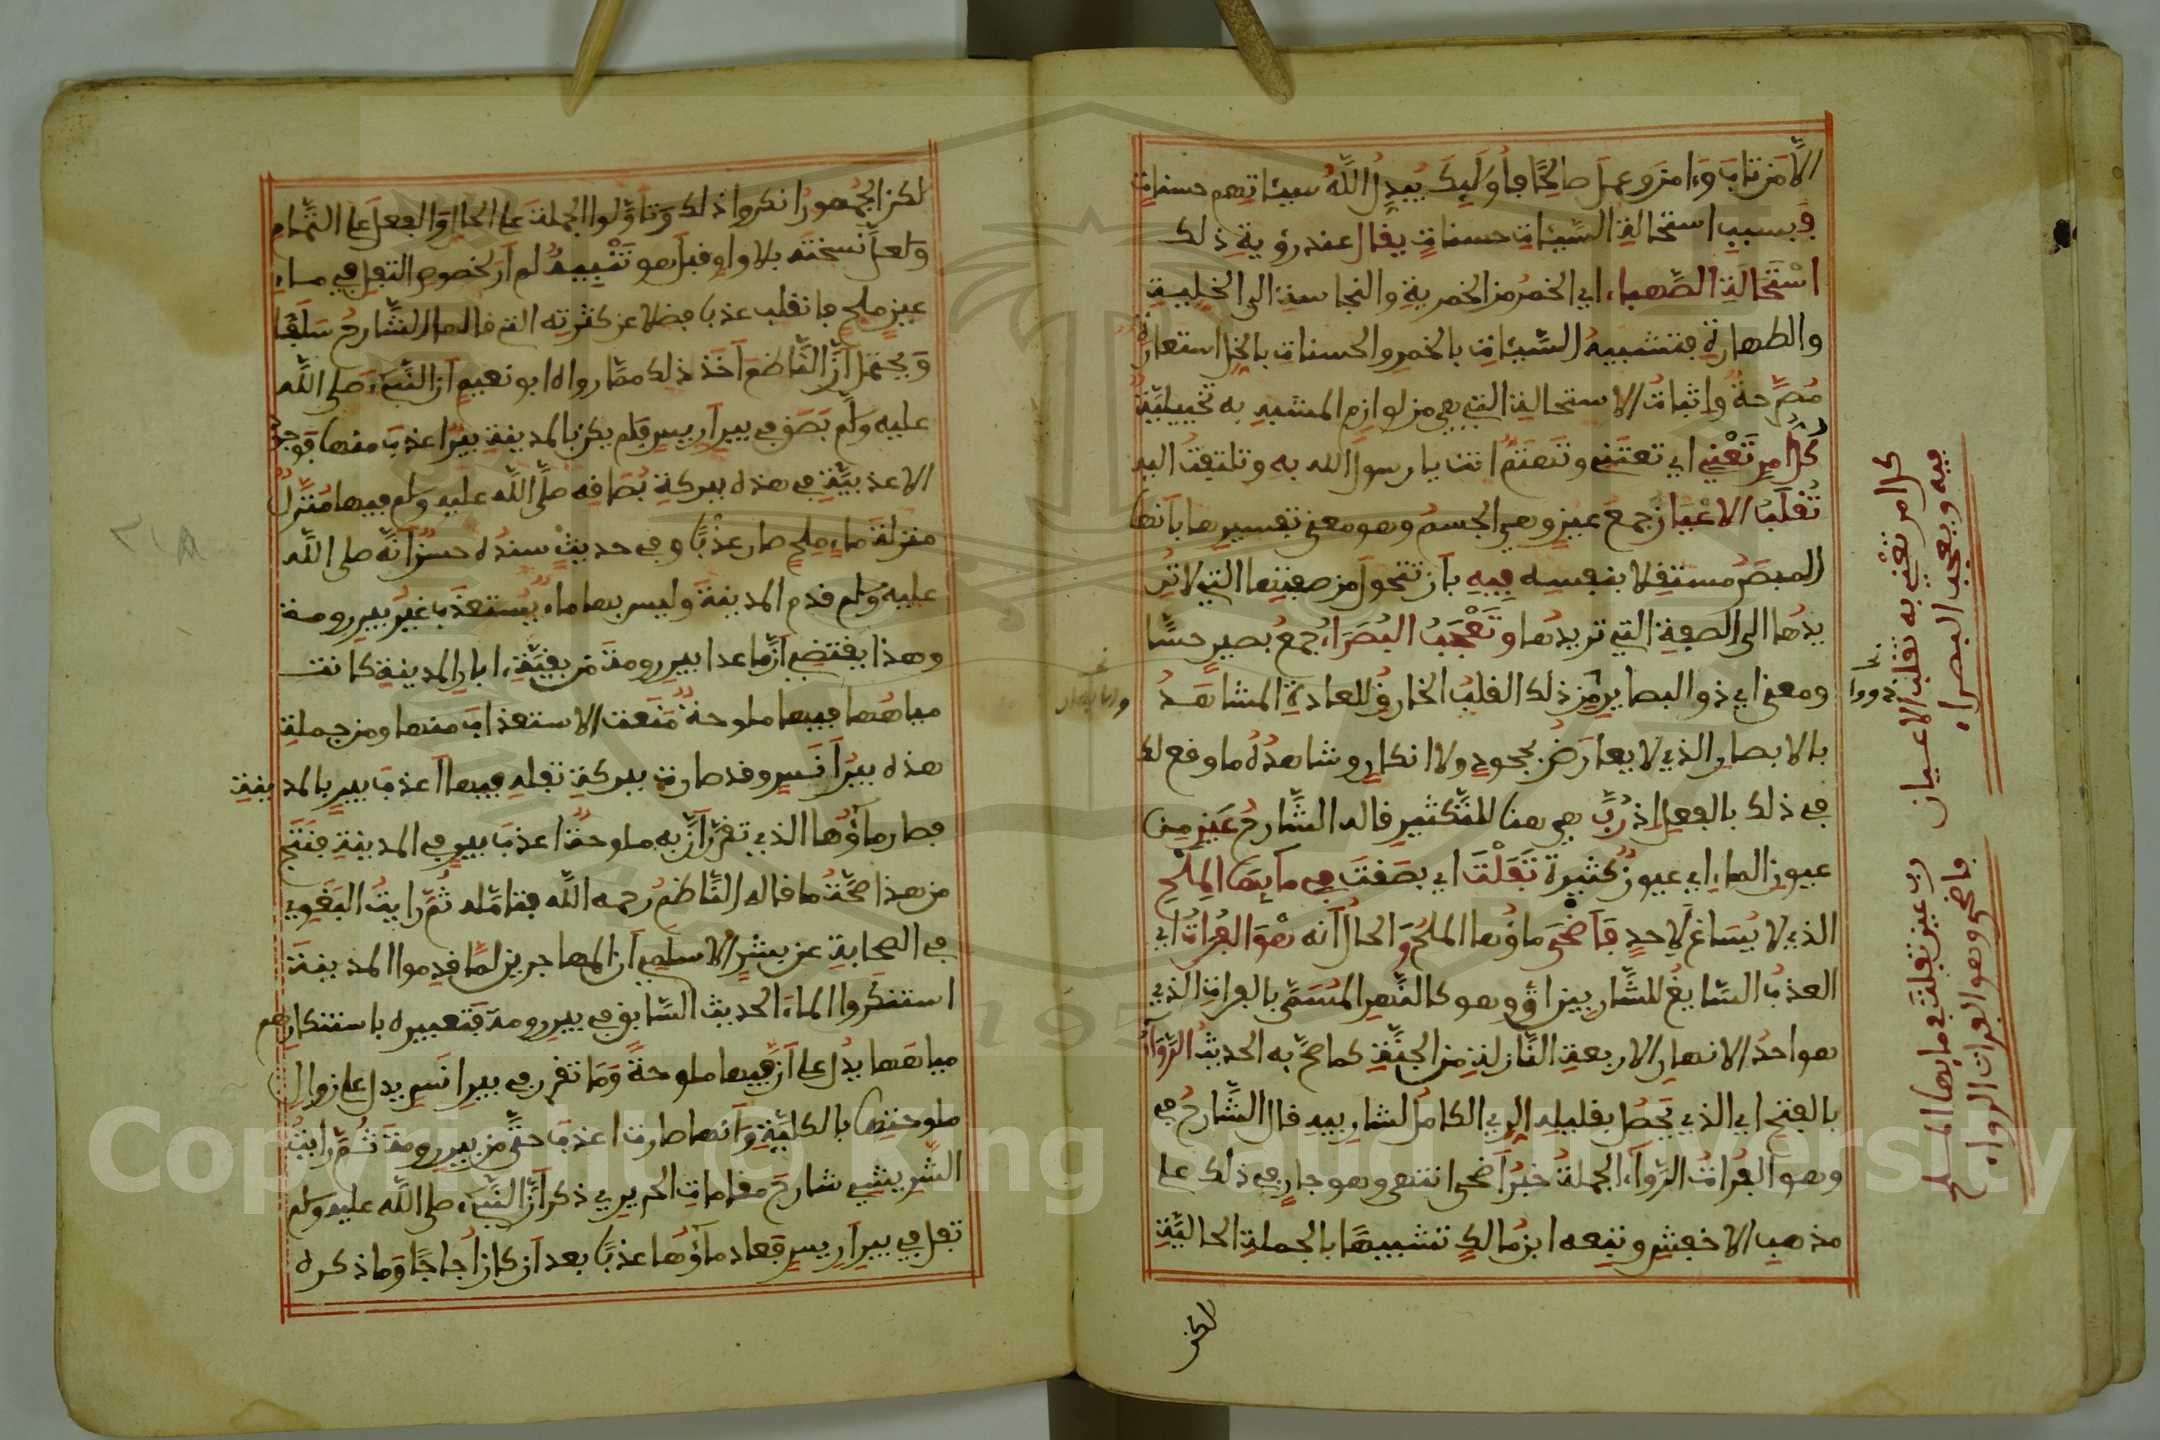 الا من تاب وءامن وعمل صالحا فأولئك يبدل الله سيئاتهم حسنات
فبسبب استحالة السيئات حسنات يقال عند رؤية ذلك
استحالة الصهباء اي الخمر من الخمرية والنجاسة الى الخلية
والطهارة فتشبيه السيئات بالخمر والحسنات بالخل استعارة
مصرحة واثبات الاستحالة التي هي من لوازم المشبه به تخييلية
كل امر تعني اي تعتني وتهتم انت يا رسول الله به وتلتفت اليه
تقلب الاعيان جمع عين وهي الجسم وهو معنى تفسيرها بانها
المبصر مستقلا بنفسه فيه بان تتحول من صفتها التي لا تر
يدها الى الصفة التي تريدها وتعجب البصراء جمع بصير حسا
ومعنى اي ذو البصاير من ذلك القلب الخارق للعادة المشاهد
بالابصار الذي لا يعارض بجحود ولا انكار وشاهده ما وقع لك
في ذلك بالفعل اذ رب هي هنا للتكثير قاله الشارح عين من
عيون الماء اي عيون كثيرة تفلت اي بصقت في مآيها الملح
الذي لا يساغ لاحد فأضحى ماؤها الملح و الحال أنه هو الفرات اي
العذب السايغ للشاربين او وهو كالنهر المسمى بالفرات الذي
هو احد الانهار الاربعة النازلة من الجنة كما صح به الحديث الرواء
بالفتح اي الذي يحصل بقليله الري الكامل لشاربيه قال الشارح في
وهو الفرات الرواء الجملة خبر أضحى انتهى وهو جار في ذلك على
مذهب الاخفش وتبعه ابن مالك تشبيها بالجملة الحالية
لكن
كل امر تعني به تقلب الاعيان
فيه وتعجب البصراء
رب عين تفلت في مايها الملح
فاضحى وهو الفرات الرواء
ذووا
لكن الجمهور انكروا ذلك وتأولوا الجملة على الحال والفعل على التمام
ولعل نسخته بلا واو قبل هو تنبيه لم أر لخصوص التفل في ماء
عين ملح فانقلب عذبا فضلا عن كثرته التي قالها الشارح سلفا
ويحتمل أن الناظم أخذ ذلك مما رواه ابو نعيم أن النبيء صلى الله
عليه وسلم بصق في بير أريس فلم يكن بالمدينة بيرا اعذب منها فوجه
الاعذبية في هذه ببركة بصاقه صلى الله عليه وسلم فيها منزل
منزلة ماء ملح صار عذبا وفي حديث سنده حسن أنه صلى الله
عليه وسلم قدم المدينة وليس بها ماء يستعذب غير بير رومة
وهذا يقتضي أن ما عدا بير رومة من بقية ءابار المدينة كانت
مياهها فيها ملوحة منعت الاستعذاب منها ومن جملة
هذه بير أنس وقد صارت ببركة تفله فيها أعذب بير بالمدينة
فصار ماؤها الذي تقرر أن به ملوحة اعذب بير في المدينة فنتج
من هذا صحة ما قاله الناظم رحمه الله فتأمله ثم رايت البغوي
في الصحابة عن بشر الاسلمي أن المهاجرين لما قدموا المدينة
استنكروا الماء الحديث السابق في بير رومة فتعبيره باستنكارهم
مياهها يدل على أن فيها ملوحة وما تقرر في بير انس يدل على زوال
ملوحتها بالكلية وأنها صارت اعذب حتى من بير رومة ثم رايت
الشريشي شارح مقامات الحريري ذكر أن النبيء صلى الله عليه وسلم
تفل في بير أريس فعاد مآؤها عذبا بعد أن كان أجاجا وما ذكره
Copyright © King Saud University